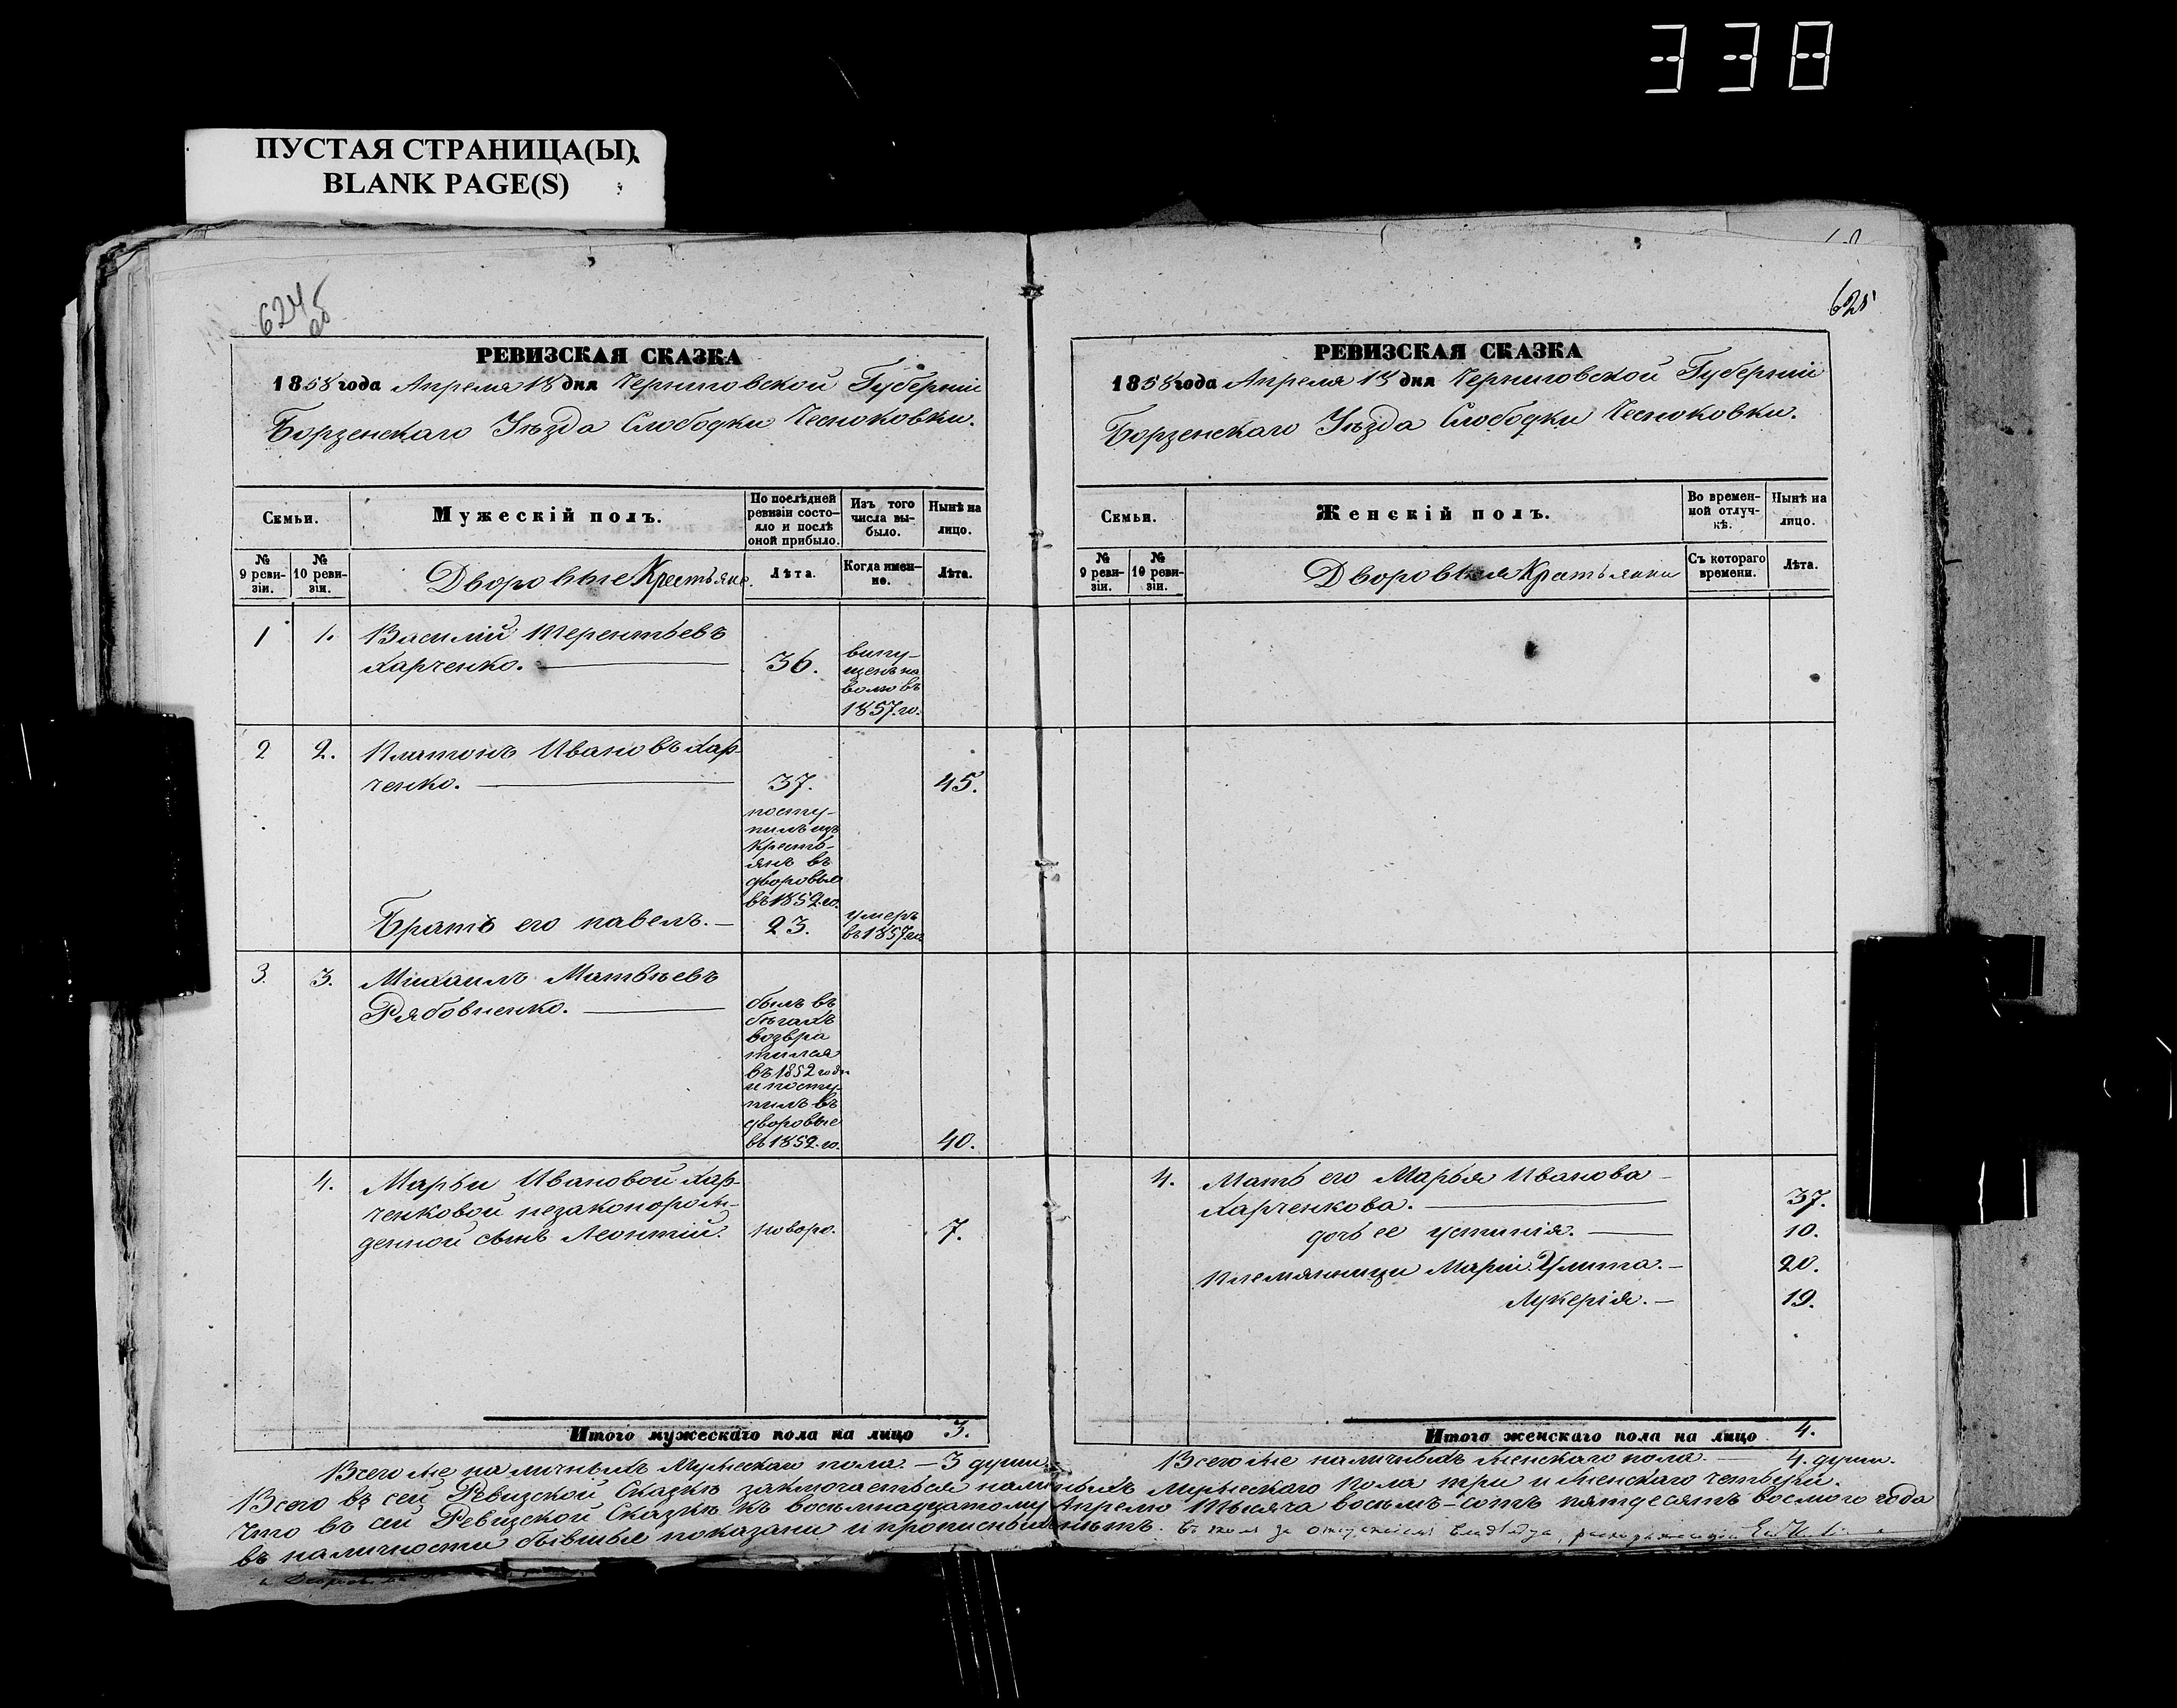 338
ПУСТАЯ СТРАНИЦА(Ы)
BLANK PAGE(S)
624 об
РЕВИЗСКАЯ СКАЗКА
1858 года Апреля 18 дня Черниговской Губернии
Борзенскаго Уѣзда Слободки Чесноковки.
Семьи.
Мужескій полъ.
По послѣдней ревизіи состояло и послѣ оной прибыло.
Изъ того числа выбыло.
Нынѣ на лицо.
№ 9 ревизіи.
№ 10 ревизіи.
Дворовые Крестьяне.
Лѣта.
Когда именно.
Лѣта.
1 1. Василій Терентьевъ
Харченко. 36.
випу-
щенъ на
волю въ
1857. го.
2 2. Платонъ Ивановъ Хар-
ченко. 37. 45.
посту-
пилъ изъ
кресть-
янъ въ
дворовыя
въ 1852. го.
Братъ его павелъ. 23.
умеръ
въ 1857 го
3. 3. Михаилъ Матвѣевъ
Рябовченко.
былъ въ
бѣгахъ
возвра
тился
въ 1852 году
и посту-
пилъ въ
дворовые
въ 1852. го. 40.
4. Марьи Ивановой Хар-
ченковой незаконорож-
денной сынъ Леонтій. новоро. 7.
Итого мужескаго пола на лицо 3.
Всего же наличныхъ Мужескаго пола — 3 души.
625
РЕВИЗСКАЯ СКАЗКА
1858 года Апреля 18 дня Черниговской Губерніи
Борзенскаго Уѣзда Слободки Чесноковки.
Семьи.
Женскій полъ.
Во временной отлучкѣ.
Нынѣ на лицо.
№ 9 ревизіи.
№ 10 ревизіи.
Дворовыя Крестьянки
Съ котораго времени.
Лѣта.
4. Мать его Марья Иванова
Харченкова. 37.
дочь ее устинія. 10.
племянници Маріи Улита. 20.
Лукерія. 19.
Итого женскаго пола на лицо 4.
Всего же наличныхъ женскаго пола — 4. души.
Всего въ сей Ревизской Сказкѣ заключаеться наличныхъ Мужескаго пола три и женскаго четыри.
Что въ сей Ревизской Сказкѣ къ восьмнадцатому Апрелю тысяча восемъ-сотъ пятдесятъ восмого года
въ наличности бывшыя показани и прописныхъ нетъ.